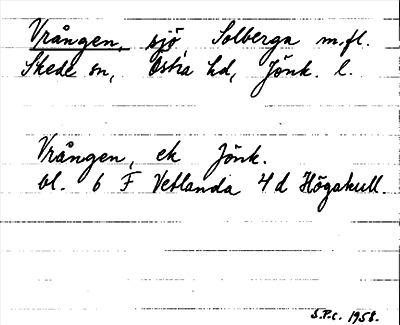 Vrången, sjö, Solberga m.fl.
Skede sn, Östra hd, Jönk. l.
Vrången, ek Jönk.
bl. 6 F Vetlanda 4 d Högakull.
S.P.C. 1958.